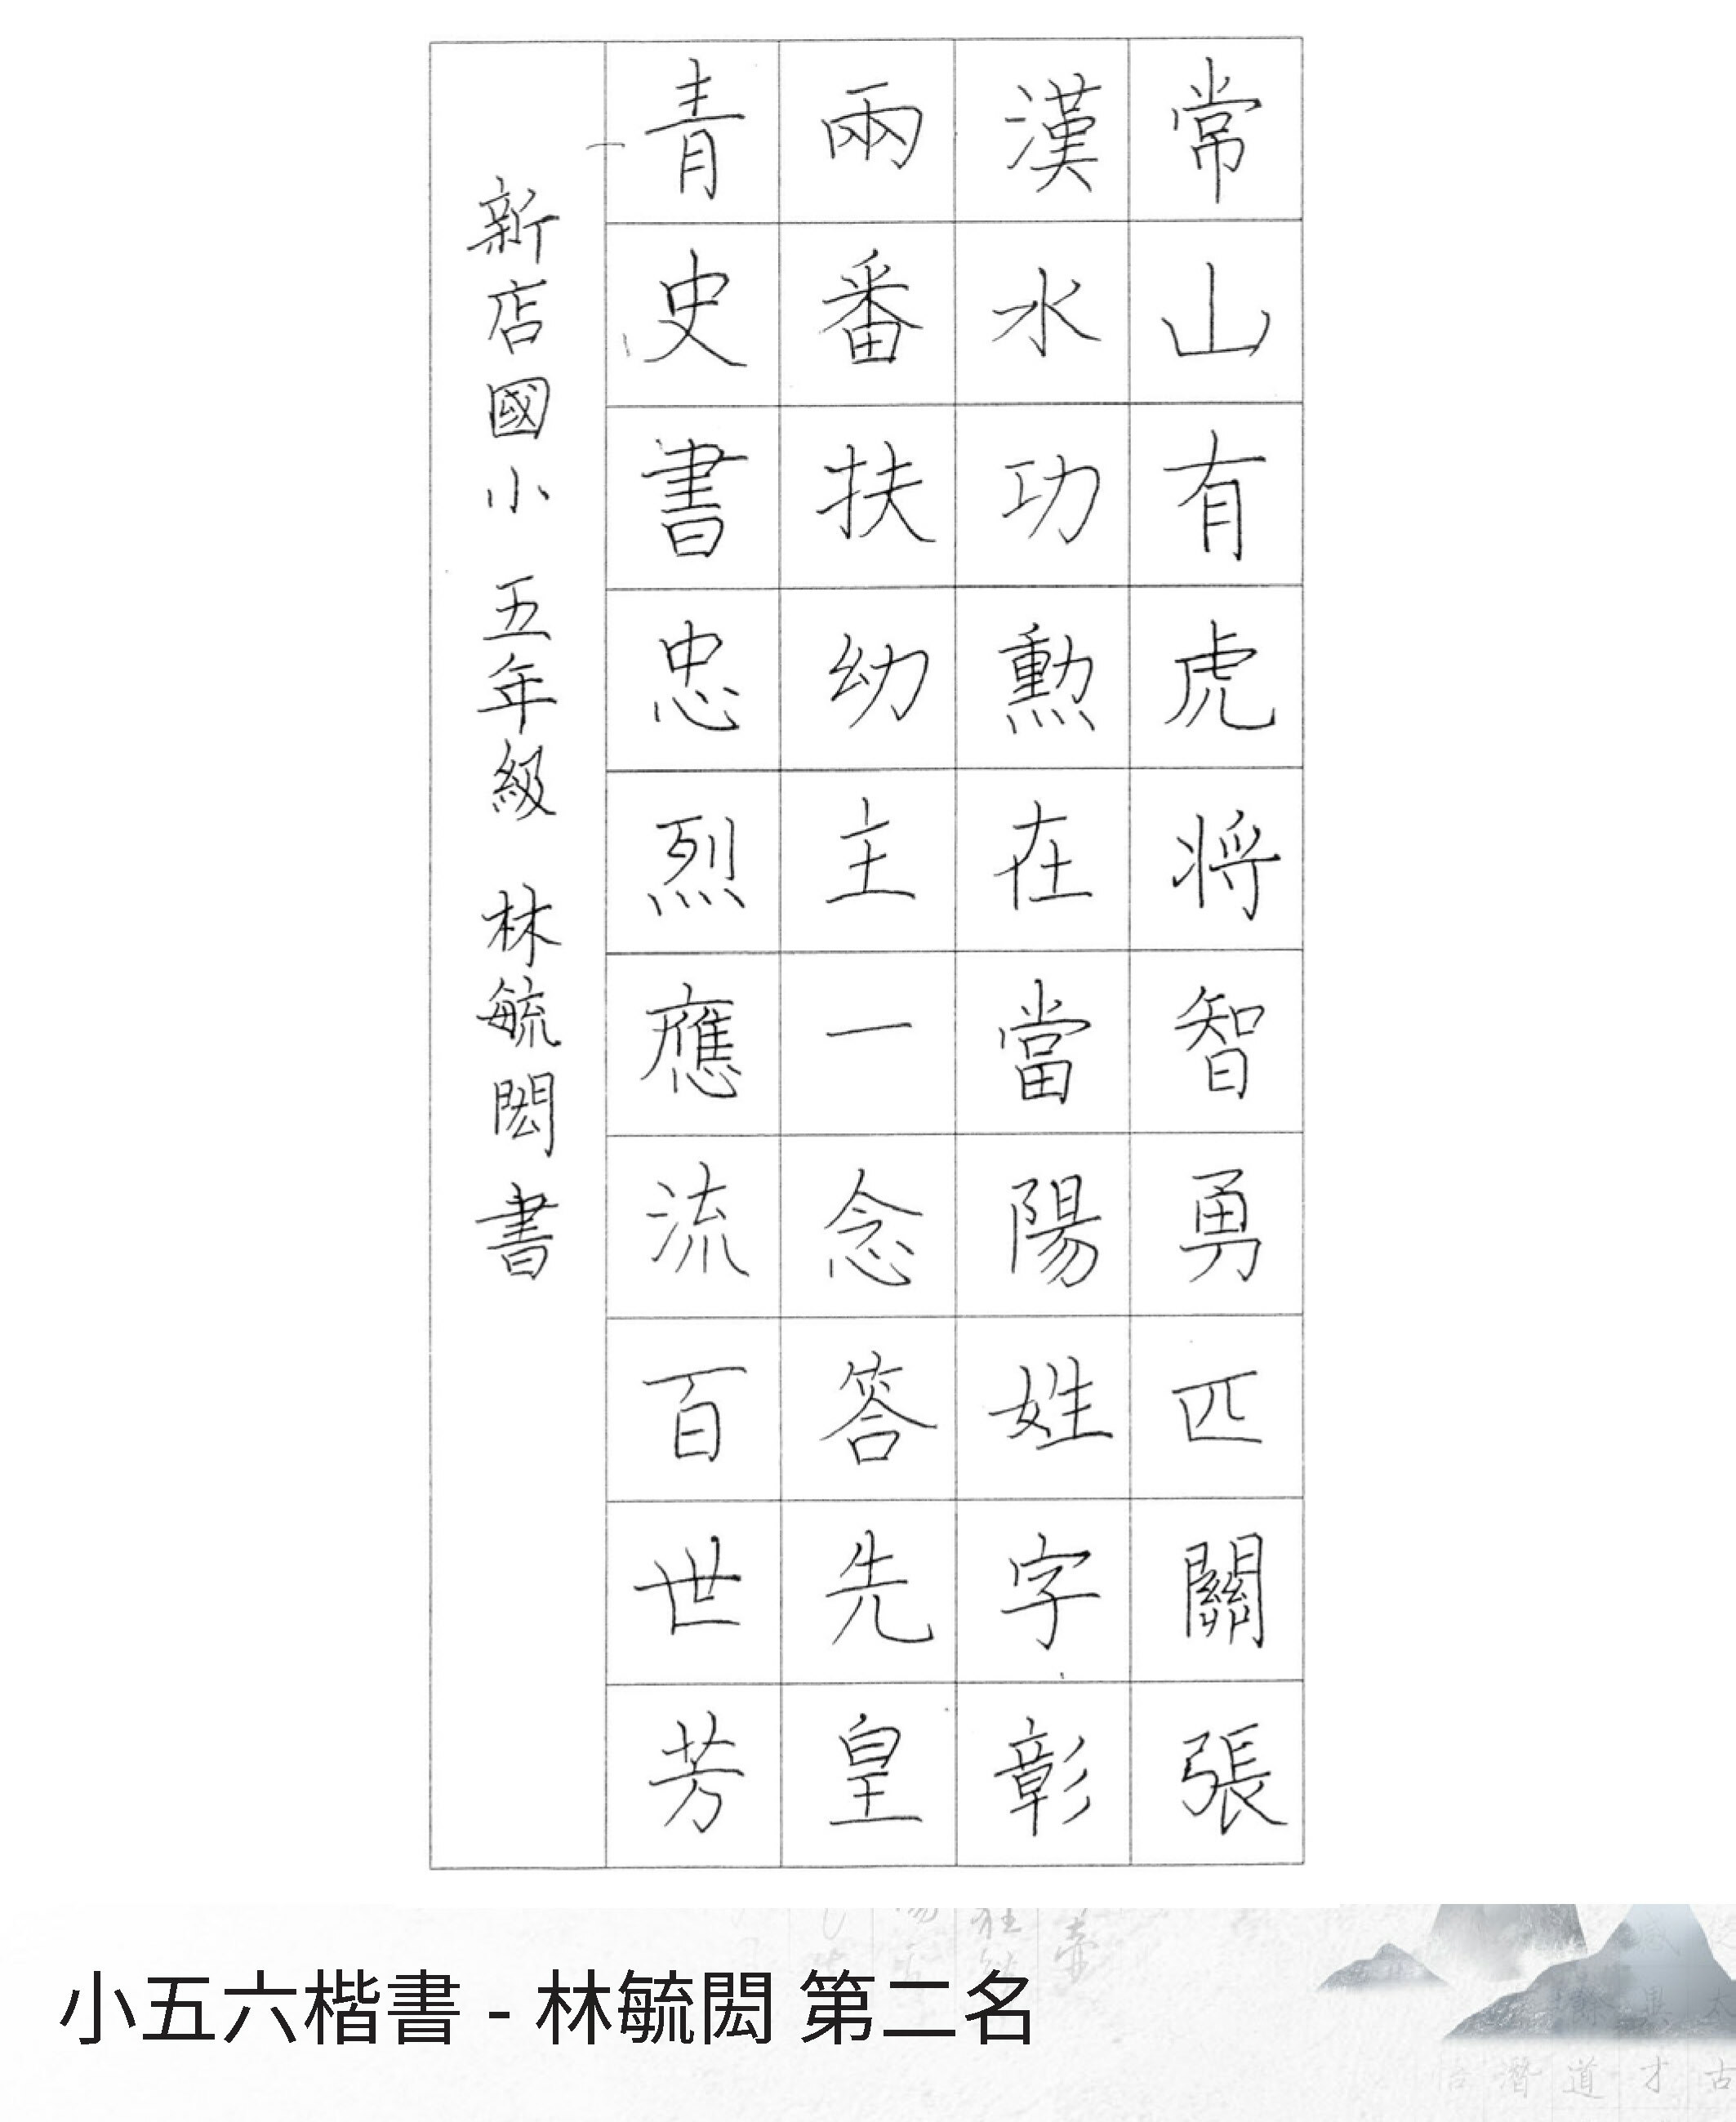 常山有虎將智勇匹關張
漢水功勳在當陽姓字彰
兩番扶幼主一念答先皇
青史書忠烈應流百世芳
新店國小 五年級 林毓閎 書
小五六楷書 - 林毓閎 第二名